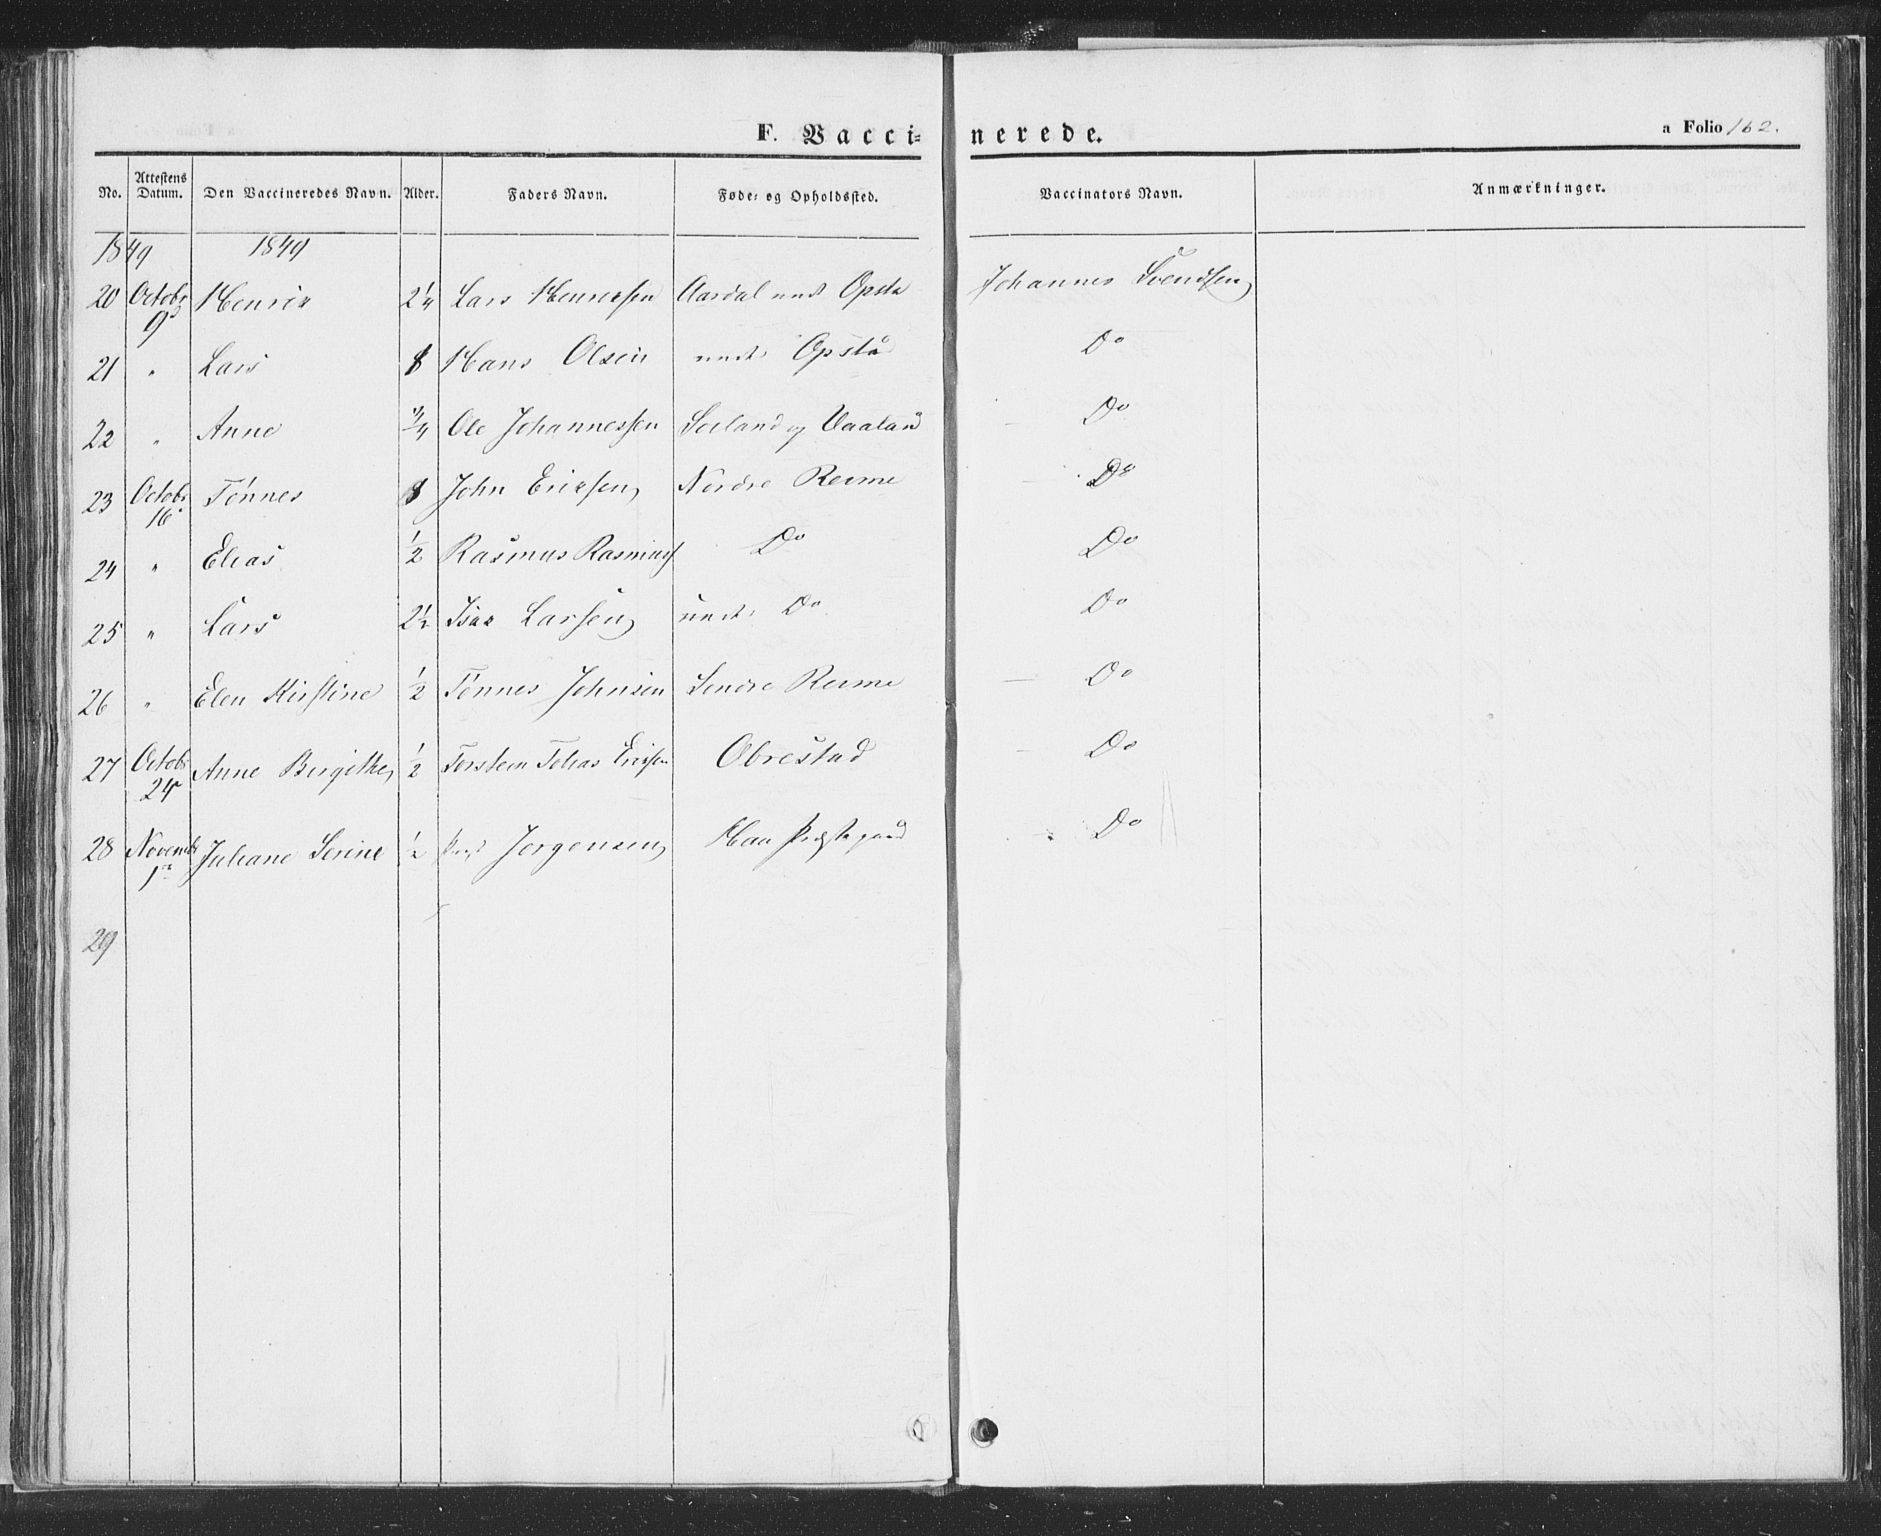 F. Vaccinerede.
a Folio 162.
No. Attestens Datum. Den Vaccineredes Navn. Alder. Faders Navn. Føde- og Opholdssted. Vaccinators Navn. Anmærkninger.
1849 1849
20 Octobr 9 Henrik 2¼ Lars Henriksen Aardal und Opsta Johannes Svendsen
21 " Lars Hans Olsen und Opstå Do
22 " Anne ¾ Ole Johannessen og Do
23 Octobr 16 Tønnes John Ericsen Nordre Reime Do
24 " Elias ½ Rasmus Rasmuss Do Do
25 " Lars 2½ Isak Larsen und Do Do
26 " Elen Kirstine ½ Tønnes Johnsen Søndre Reime Do
27 Octobr 24 Anne Birgithe ½ Torsteen Tobias Ericsen Obrestad Do
28 Novemb 1 Juliane Serine ½ Jørgensen Haa Præstegaard Do
29